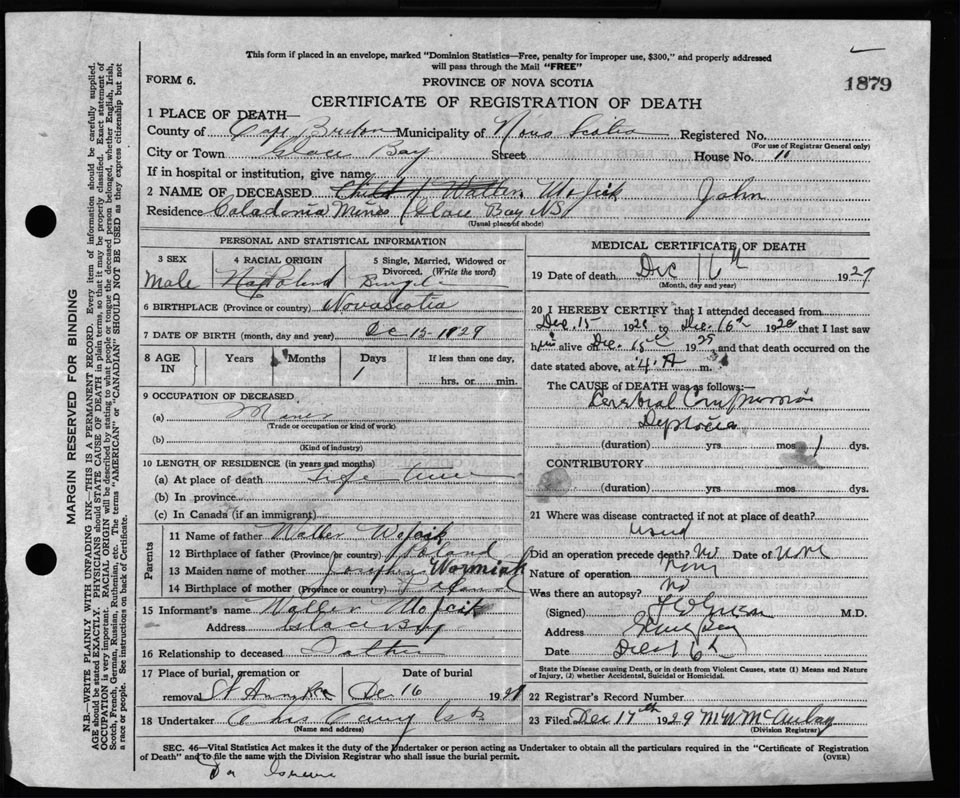 This form if placed in an envelope, marked "Dominion Statistics—Free, penalty for improper use, $300," and properly addressed
will pass through the Mail "FREE"
FORM 6.
PROVINCE OF NOVA SCOTIA
1879
CERTIFICATE OF REGISTRATION OF DEATH
1 PLACE OF DEATH—
County of Cape Breton Municipality of Nova Scotia Registered No.
(For use of Registrar General only)
City or Town Glace Bay Street House No. 11
If in hospital or institution, give name
2 NAME OF DECEASED Child of Walter Wojick John
Residence Caladonia Mines Glace Bay NS
(Usual place of abode)
PERSONAL AND STATISTICAL INFORMATION
3 SEX
4 RACIAL ORIGIN
5 Single, Married, Widowed or
Divorced. (Write the word)
Male Poland Single
6 BIRTHPLACE (Province or country) Novascotia
7 DATE OF BIRTH (month, day and year) 1929
8 AGE
IN
Years Months Days If less than one day,
1
hrs. or min.
9 OCCUPATION OF DECEASED
(a)
(Trade or occupation or kind of work)
(b)
(Kind of industry)
10 LENGTH OF RESIDENCE (in years and months)
(a) At place of death Life time
(b) In province
(c) In Canada (if an immigrant)
Parents
11 Name of father Walter
12 Birthplace of father (Province or country) Poland
13 Maiden name of mother Josephine
14 Birthplace of mother (Province or country) Poland
15 Informant's name Walter
Address Glace Bay
16 Relationship to deceased Father
17 Place of burial, cremation or
removal
Date of burial
Dec 16 192
18 Undertaker
(Name and address)
MEDICAL CERTIFICATE OF DEATH
19 Date of death Dec 16th 1929
(Month, day and year)
20 I HEREBY CERTIFY that I attended deceased from
Dec. 15 192 to Dec. 16th 192 that I last saw
him alive on Dec. 1929 and that death occurred on
date stated above, at 4 A m.
The CAUSE of DEATH was as follows:—
Cerebral
(duration) yrs mos 1 dys.
CONTRIBUTORY
(duration) yrs. mos. dys.
21 Where was disease contracted if not at place of death?
Did an operation precede death? No Date of None
Nature of operation None
Was there an autopsy? No
(Signed) M.D.
Address Glace Bay
Date Dec 16th
State the Disease causing Death, or in death from Violent Causes, state (1) Means and Nature
of Injury, (2) whether Accidental, Suicidal or Homicidal.
22 Registrar's Record Number
23 Filed Dec 17th 1929 M W McAulay
(Division Registrar)
SEC. 46—Vital Statistics Act makes it the duty of the Undertaker or person acting as Undertaker to obtain all the particulars required in the "Certificate of Registration
of Death" and to file the same with the Division Registrar who shall issue the burial permit.
(OVER)
MARGIN RESERVED FOR BINDING
N.B.—WRITE PLAINLY WITH UNFADING INK—THIS IS A PERMANENT RECORD. Every item of information should be carefully supplied.
AGE should be stated EXACTLY. PHYSICIANS should STATE CAUSE OF DEATH in plain terms, so that it may be properly classified. Exact statement of
OCCUPATION is very important. RACIAL ORIGIN will be described by stating to what people or tongue the deceased person belonged, whether English, Irish,
Scotch, French, German, Russian, Ruthenian, etc. The terms "AMERICAN" or "CANADIAN" SHOULD NOT BE USED as they express citizenship but not
a race or people. See instructions on back of Certificate.